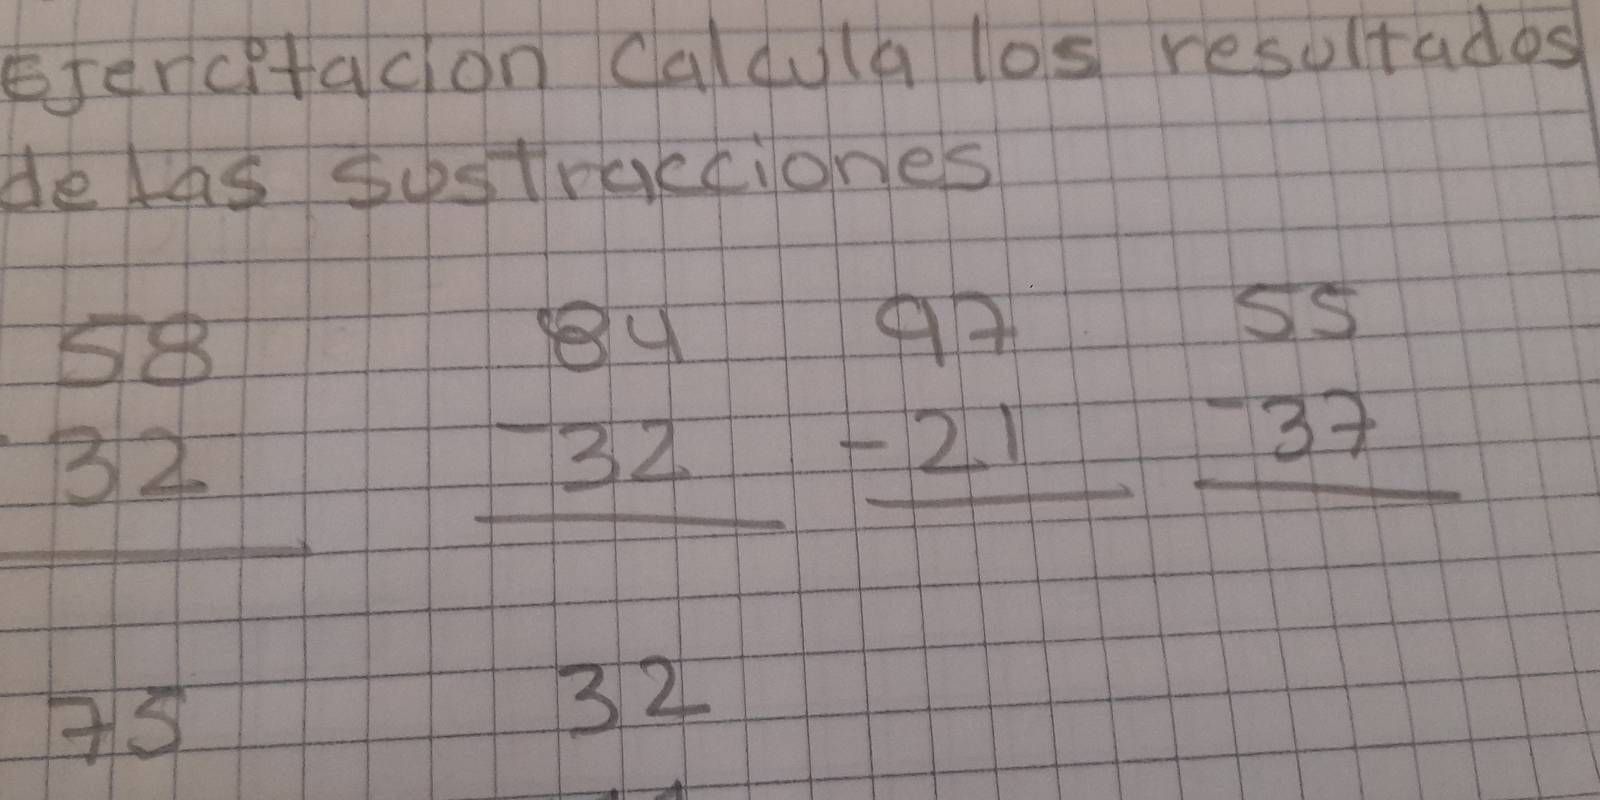 Ejercitacion Calcula los resultados
de las sustracciones
58 84 97 55
- 32 - 32 - 21 - 37
75 32